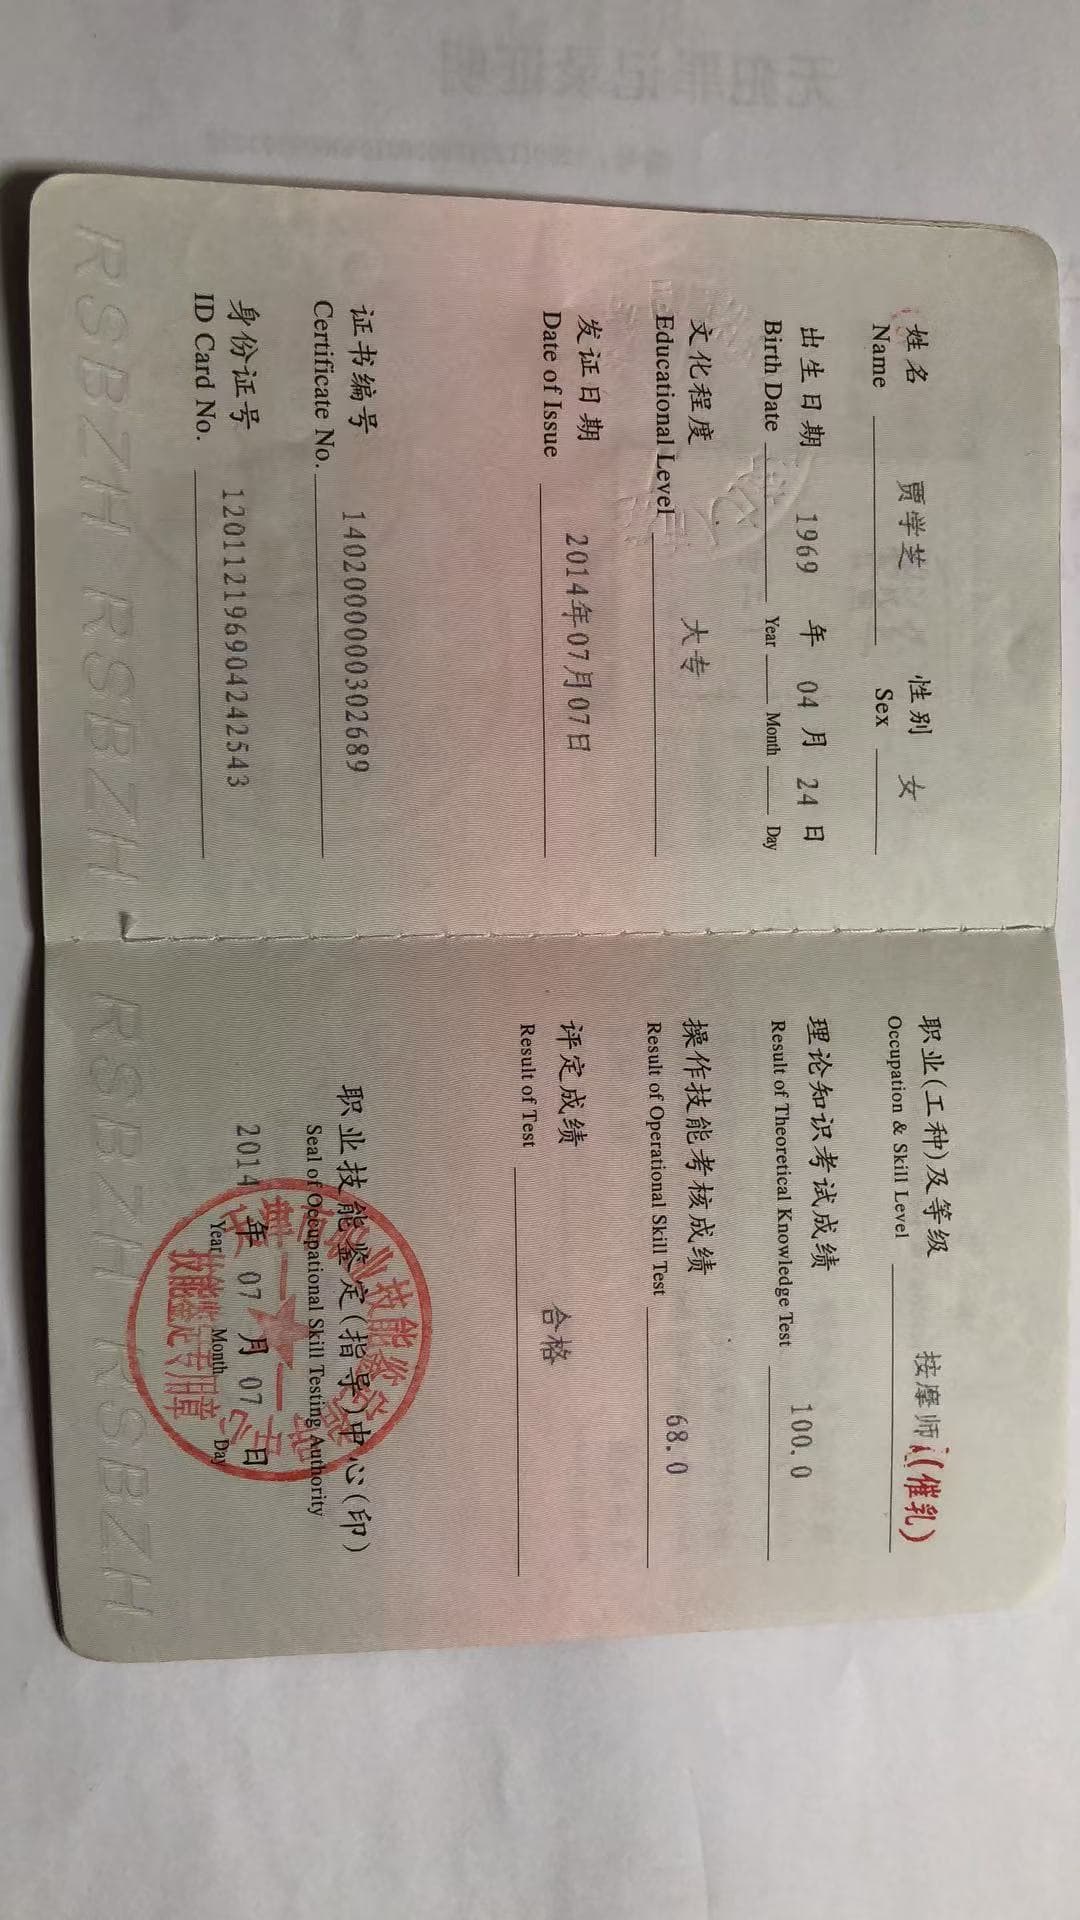 无犯罪记录证明
姓名 贾学芝 性别 女
Name Sex
出生日期 1969 年 04 月 24 日
Birth Date Year Month Day
文化程度 大专
Educational Level
发证日期 2014年07月07日
Date of Issue
证书编号 1402000000302689
Certificate No.
身份证号 120112196904242543
ID Card No.
RSBZH RSBZH
职业(工种)及等级 按摩师(催乳)
Occupation & Skill Level
理论知识考试成绩 100.0
Result of Theoretical Knowledge Test
操作技能考核成绩 68.0
Result of Operational Skill Test
评定成绩 合格
Result of Test
职业技能鉴定(指导)中心(印)
Seal of Occupational Skill Testing Authority
2014 年 07 月 07 日
Year Month Day
技能鉴定专用章
RSBZH RSBZH